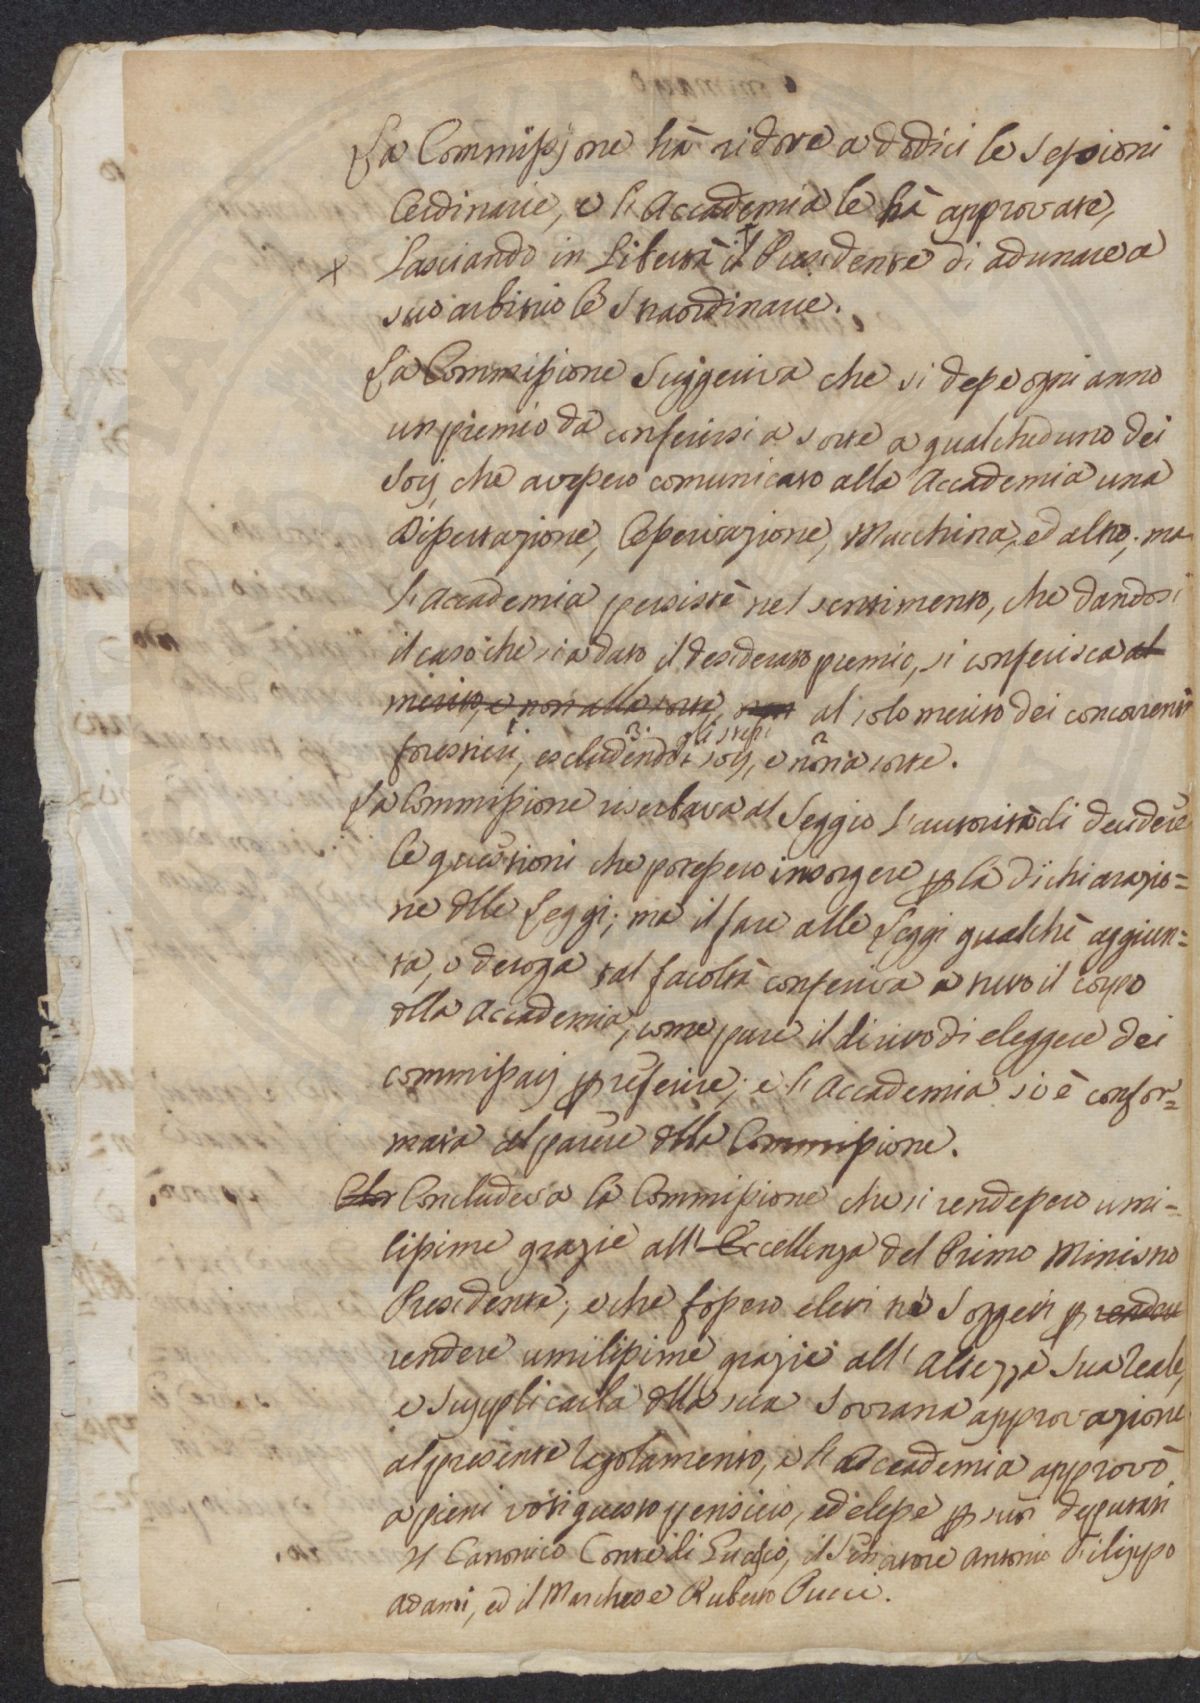 La Commissione hà ridotte a dodici le Sessioni
Ordinarie, e l'Accademia le hà approvate,
lasciando in Libertà il Presidente di adunare a
suo arbitrio le straordinarie.
La Commissione Suggeriva che si desse ogni anno
un premio da conferirsi a sorte a qualcheduno dei
Socij, che avessero comunicato alla Accademia una
Dissertazione, Osservazione, Macchina, ed altro; ma
l'Accademia persistè nel sentimento, che dandosi
il caso che sia dato il desiderato premio, si conferisca al
merito, e non alla sorte, al solo merito dei concorrenti
forestieri, escludendosi gli stessi socij, e non a sorte.
La Commissione riserbava al Seggio l'autorità di decidere
le questioni che potessero insorgere p la dichiarazio=
ne dlle Leggi; ma il fare alle Leggi qualchè aggiun=
ta, o deroga tal facoltà conferiva a tutto il corpo
dlla Accademia, come pure il diritto di eleggere dei
commissarj p riferire; e l'Accademia si è confor=
mata al parere dlla Commissione.
Concludeva la Commissione che si rendessero umi=
lissime grazie all'Eccellenza del Primo Ministro
Presidente, e che fossero eletti trè Soggetti p rendere
rendere umilissime grazie all'Altezza Sua Reale,
e Supplicarla dlla sua Sovrana approvazione
al presente Regolamento, e l'Accademia approvò
a pieni voti questo pensiero, ed elesse p suoi deputati
Il Canonico Conte di Lucio, il Senatore Antonio Filippo
Adami, ed il Marchese Ruberto Pucci.